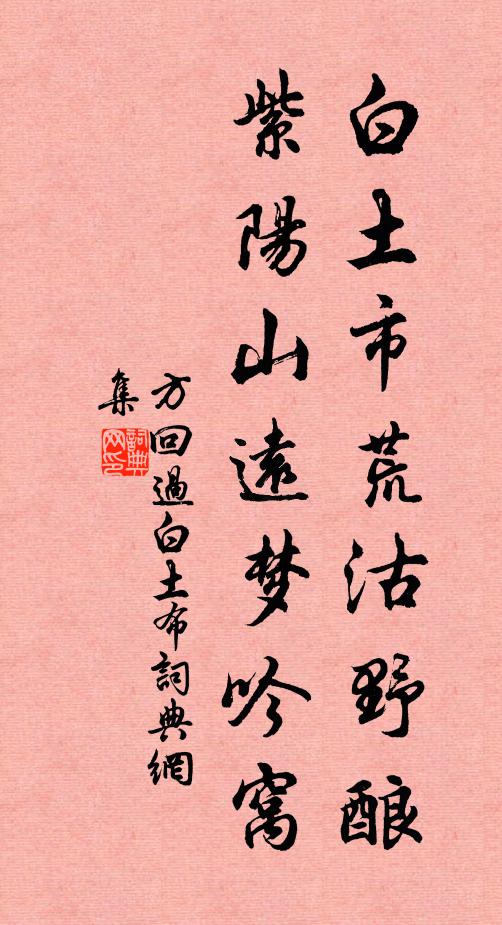 白土市荒沽野酿
紫陽山遠梦吟窩
方回過白土布詞典網
集
詞典
网印